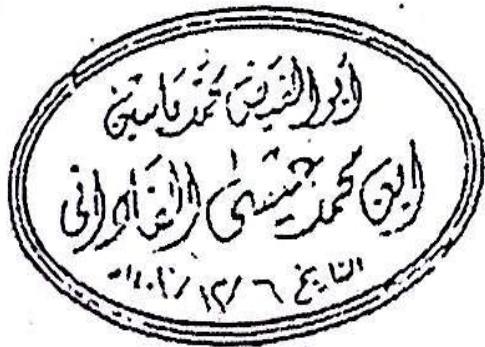 أبو الفيض محمد ياسين
ابن محمد عيسى الفاداني
التاريخ ٦ / ١٢ / ١٤٠٢هـ